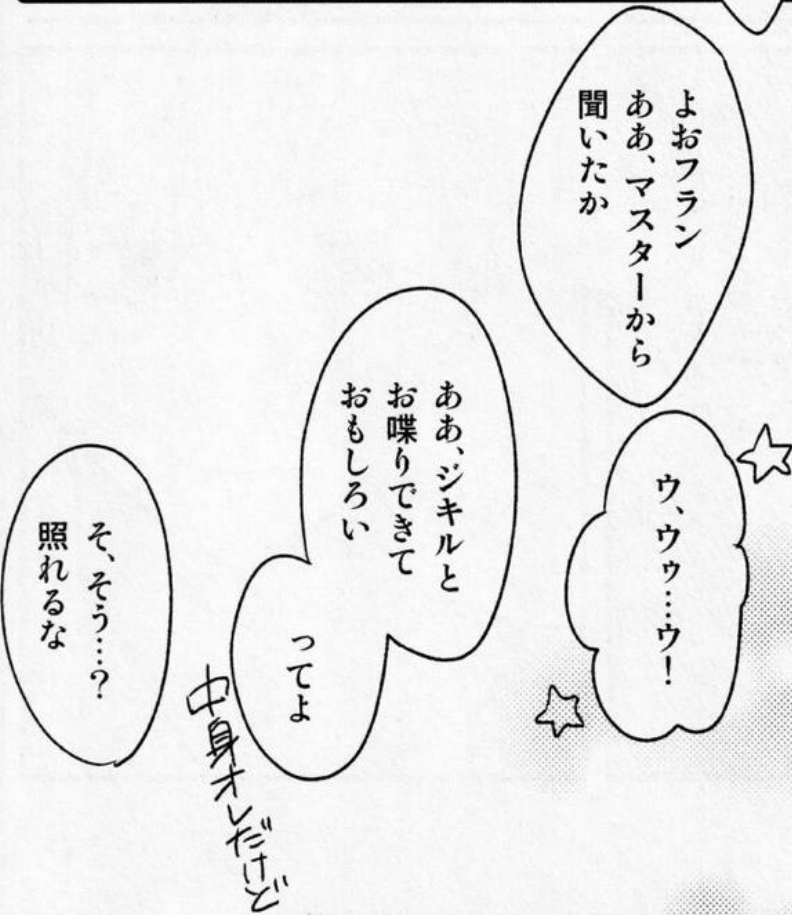 よおフラン
ああ、マスターから
聞いたか
ウ、ウゥ…ウ!
ああ、ジキルと
お喋りできて
おもしろい
ってよ
中身オレだけど
そ、そう…?
照れるな